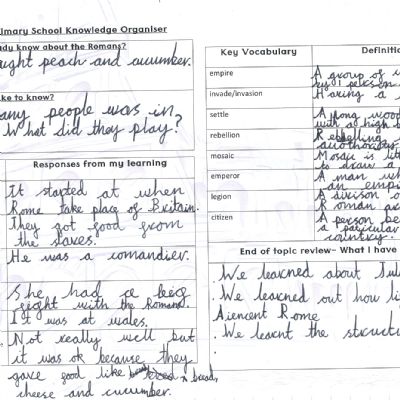 imary School Knowledge Organiser
ady know about the Romans?
ught peach and cucumber.
ike to know?
any people was in
What did they play?
Responses from my learning
It started at when
Rome take place of Britain.
They got good from
the slaves.
He was a comandier.
She had a big
eight with the Romans.
It was at wales.
Not really well but
it was ok because they
gave good like bread,
cheese and cucumber.
Key Vocabulary
Definitio
empire
A group of
by 1 person
invade/invasion
Having a
settle
A long wood
with a high b
rebellion
Rebelling
authoristy
mosaic
Mosaic is lit
to draw a
emperor
A man wh
an empi
legion
A divison o
Roman ar
citizen
A person be
a particular
country.
End of topic review– What I have
We learned about Jul
We learned out how li
Aiencent Rome
We learnt the struct